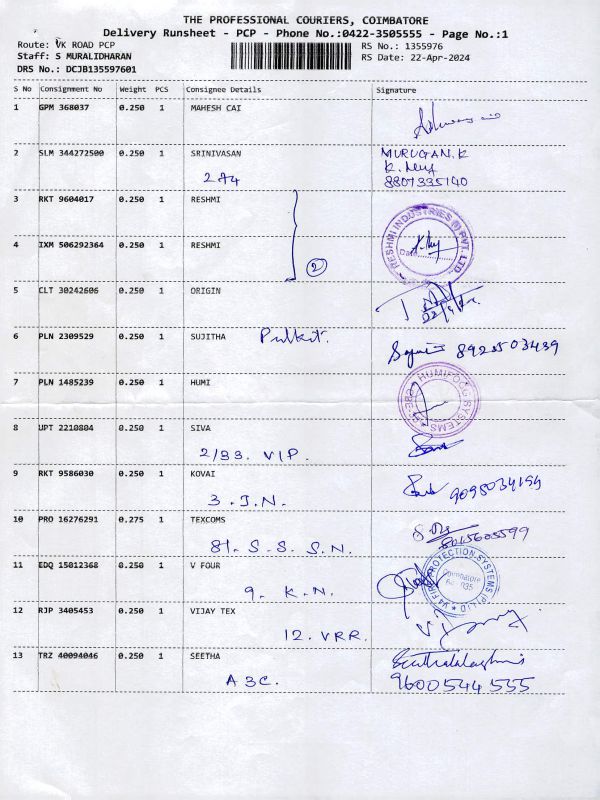 THE PROFESSIONAL COURIERS, COIMBATORE
Delivery Runsheet - PCP - Phone No.:0422-3505555 - Page No.:1
Route: VK ROAD PCP
Staff: S MURALIDHARAN
DRS No.: DCJB135597601
RS No.: 1355976
RS Date: 22-Apr-2024
S No Consignment No Weight PCS Consignee Details Signature
1 GPM 368037 0.250 1 MAHESH CAI
2 SLM 344272500 0.250 1 SRINIVASAN MURUGAN.K
2A4 8807335140
3 RKT 9604017 0.250 1 RESHMI
RESHMI INDUSTRIES (I) PVT. LTD.
Date
4 IXM 506292364 0.250 1 RESHMI
2
5 CLT 30242606 0.250 1 ORIGIN
6 PLN 2309529 0.250 1 SUJITHA
7 PLN 1485239 0.250 1 HUMI
HUMIFOG SYSTEMS
8 UPT 2210804 0.250 1 SIVA
2/33. VIP.
9 RKT 9586030 0.250 1 KOVAI
3. J.N.
10 PRO 16276291 0.275 1 TEXCOMS
81. S. S. S.N.
11 EDQ 15012368 0.250 1 V FOUR
9. K.N.
V4 FIRE PROTECTION SYSTEMS (P) LTD
Coimbatore
12 RJP 3405453 0.250 1 VIJAY TEX
12. VRR.
13 TRZ 40094046 0.250 1 SEETHA
A3C. 9600544555